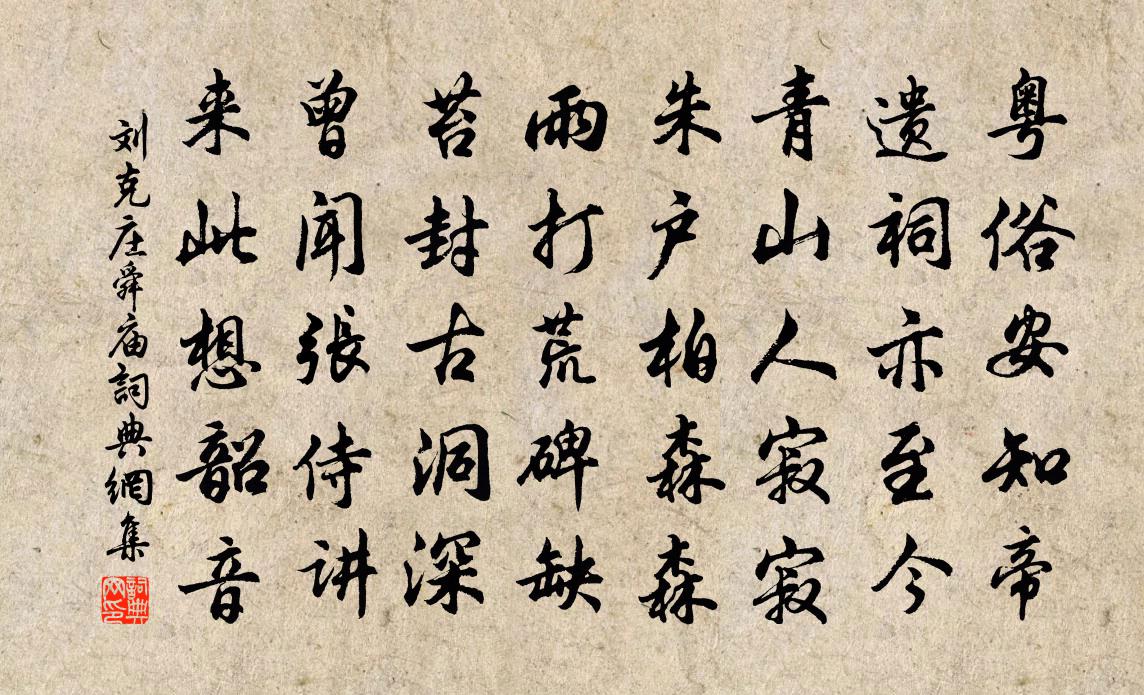 粤俗安知帝
遗祠亦至今
青山人寂寂
朱户柏森森
雨打荒碑缺
苔封古洞深
曾闻張侍讲
来此想韶音
刘克庄舜庙詞典網集
詞典网印